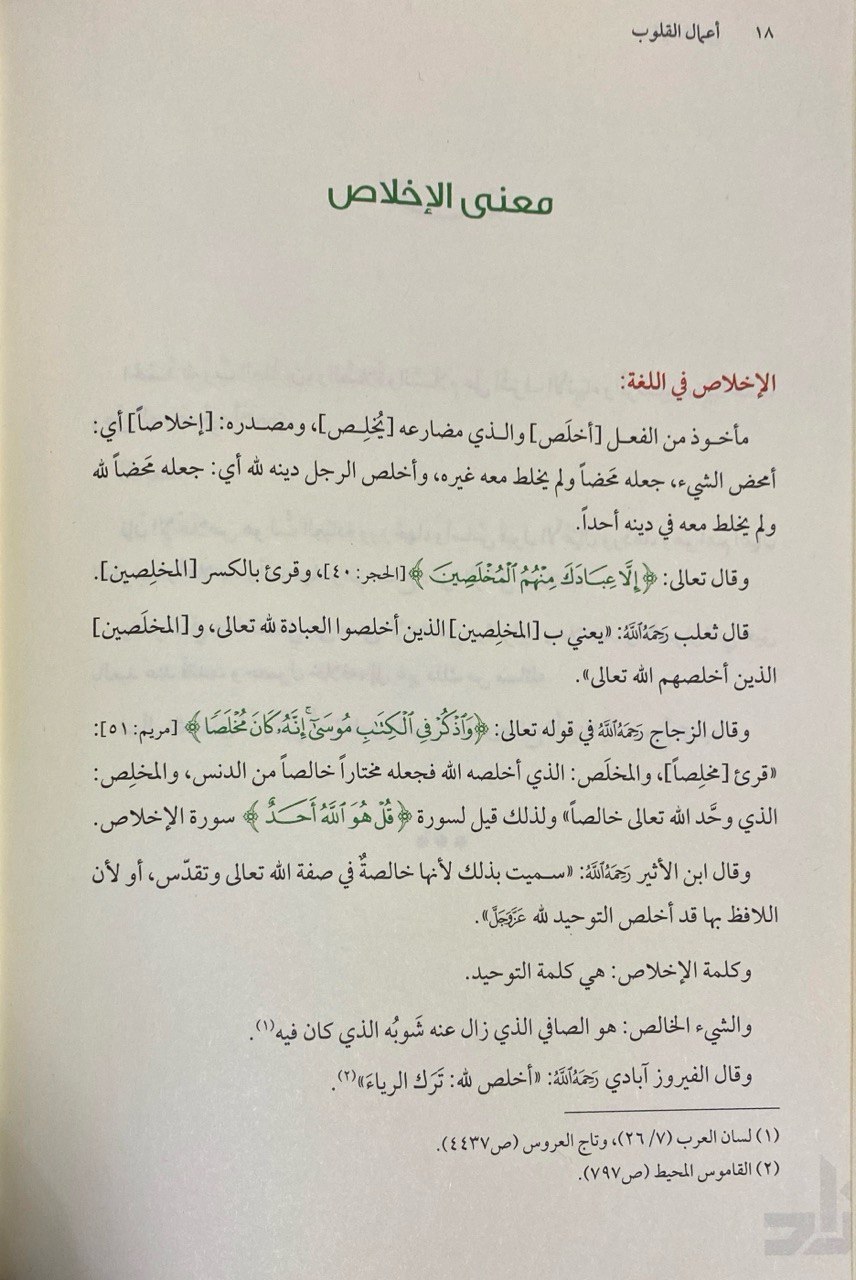 ١٨ أعمال القلوب
معنى الإخلاص
الإخلاص في اللغة:
مأخـوذ من الفعـل [أخلَص] والـذي مضارعه [يُخلِـص]، ومصـدره: [إخلاصاً] أي:
أمحض الشيء، جعله مَحَضاً ولم يخلط معه غيره، وأخلص الرجل دينه لله أي: جعله مَحَضاً لله
ولم يخلط معه في دينه أحداً.
وقال تعالى: ﴿إِلَّا عِبَادَكَ مِنْهُمُ ٱلْمُخْلَصِينَ﴾ [الحجر: ٤٠]، وقرئ بالكسر [المخلِصين].
قال ثعلب رَحِمَهُ ٱللَّهُ: «يعني ب [المخلِصين] الذين أخلصوا العبادة لله تعالى، و [المخلَصين]
الذين أخلصهم الله تعالى».
وقال الزجاج رَحِمَهُ ٱللَّهُ في قوله تعالى: ﴿وَٱذْكُرْ فِي ٱلْكِتَٰبِ مُوسَىٰٓۚ إِنَّهُۥ كَانَ مُخْلَصًا﴾ [مريم: ٥١]:
«قرئ [مخلِصاً]، والمخلَص: الذي أخلصه الله فجعله مختاراً خالصاً من الدنس، والمخلِص:
الذي وحَّد الله تعالى خالصاً» ولذلك قيل لسورة ﴿قُلْ هُوَ ٱللَّهُ أَحَدٌ﴾ سورة الإخلاص.
وقال ابن الأثير رَحِمَهُ ٱللَّهُ: «سـميت بذلك لأنها خالصةٌ في صفة الله تعالى وتقدّس، أو لأن
اللافظ بها قد أخلص التوحيد لله عَزَّوَجَلَّ».
وكلمة الإخلاص: هي كلمة التوحيد.
والشيء الخالص: هو الصافي الذي زال عنه شَوبُه الذي كان فيه(١).
وقال الفيروز آبادي رَحِمَهُ ٱللَّهُ: «أخلص لله: تَرَك الرياءَ»(٢).
(١) لسان العرب (٧/ ٢٦)، وتاج العروس (ص٤٤٣٧).
(٢) القاموس المحيط (ص٧٩٧).